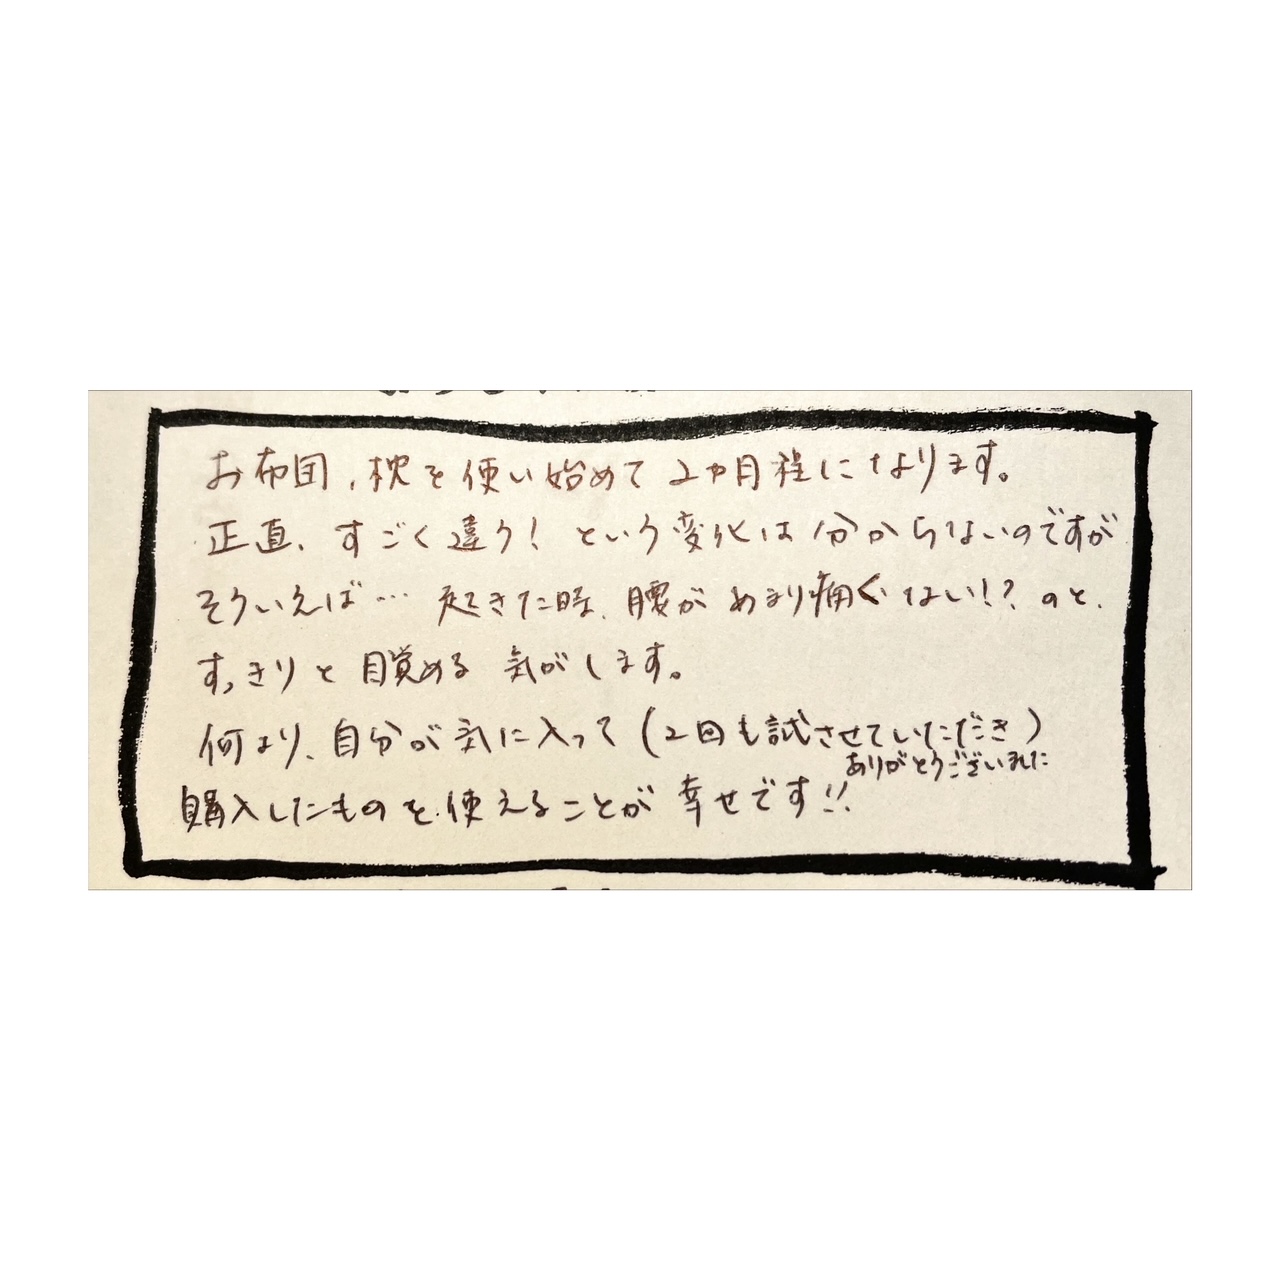 お布団、枕を使い始めて2ヵ月程になります。
正直、すごく違う!という変化は分からないのですが
そういえば…起きた時、腰があまり痛くない!?のと、
すっきりと目覚める気がします。
何より、自分が気に入って(2回も試させていただき)
ありがとうございました
購入したものを使えることが幸せです!!